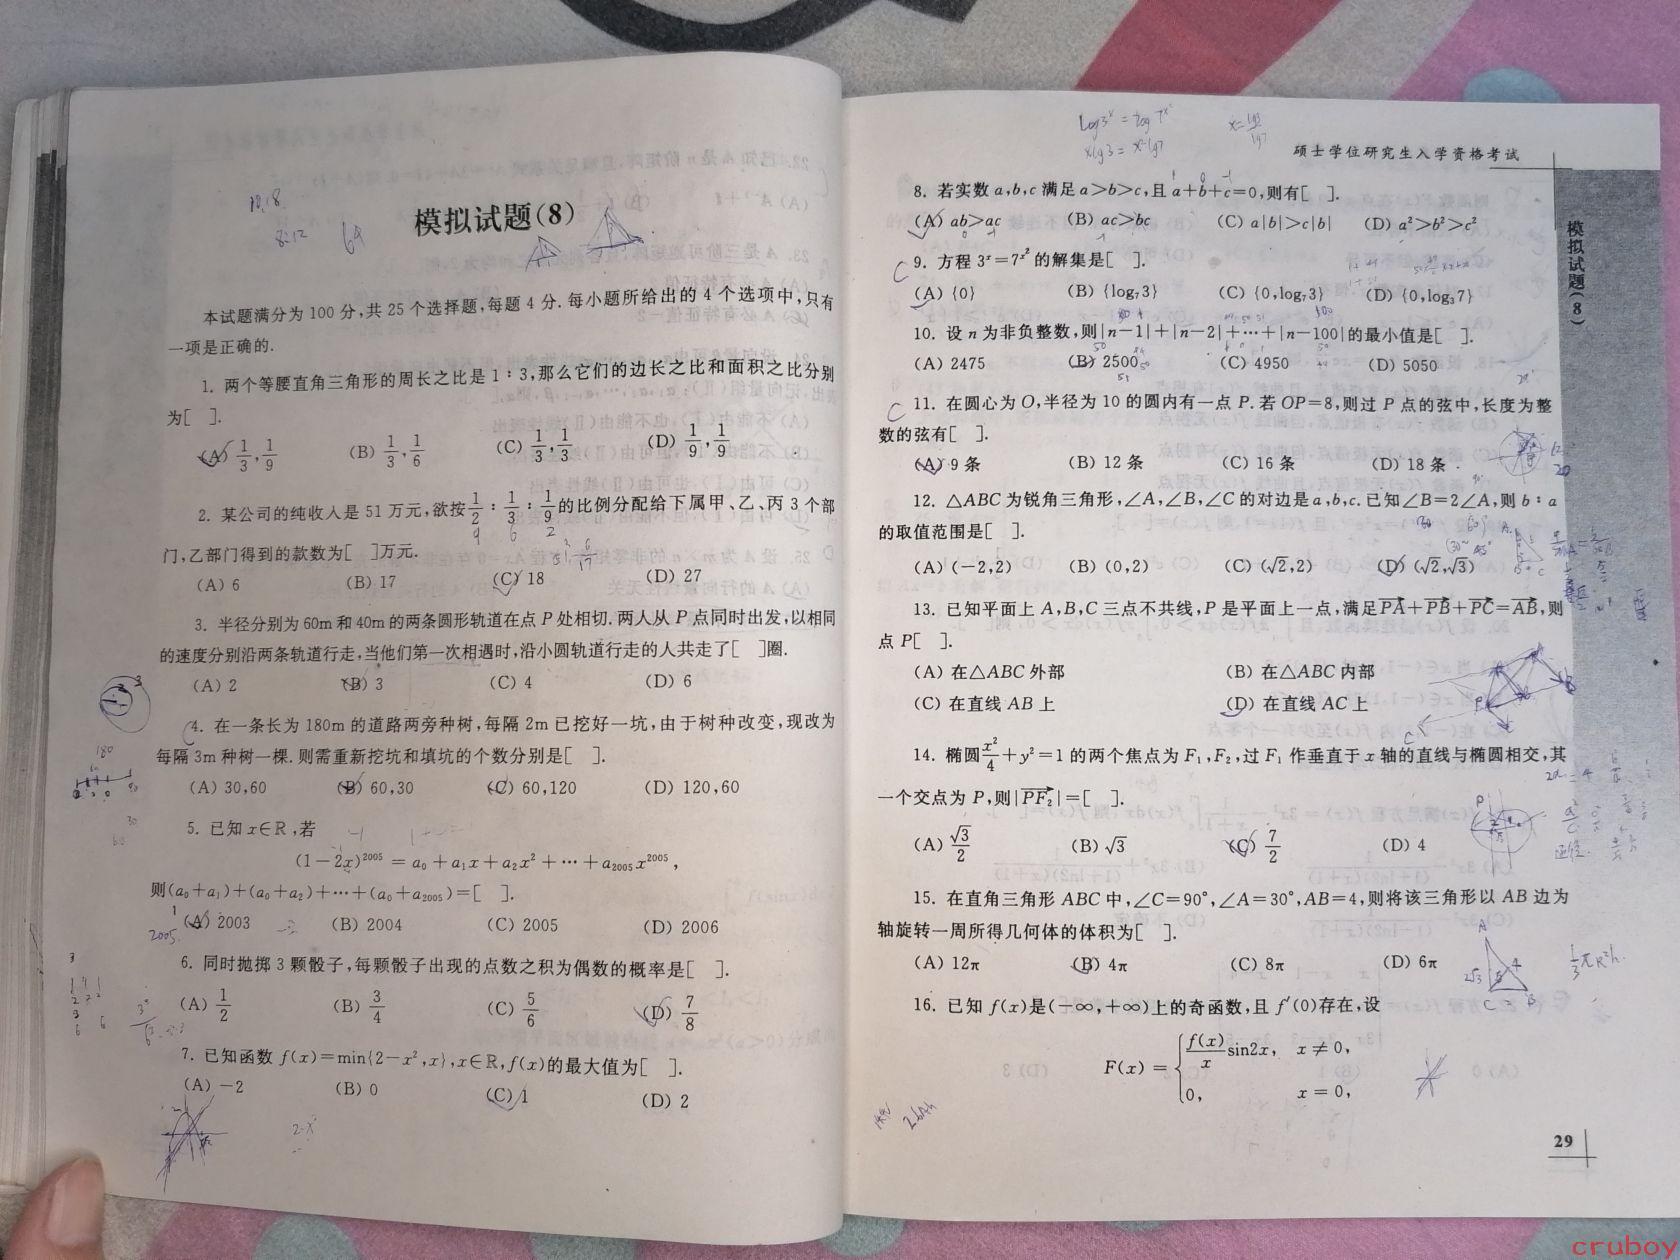 模拟试题(8)
本试题满分为 100 分,共 25 个选择题,每题 4 分. 每小题所给出的 4 个选项中,只有
一项是正确的.
1. 两个等腰直角三角形的周长之比是 1∶3,那么它们的边长之比和面积之比分别
为[ ].
(A) 1/3,1/9 (B) 1/3,1/6 (C) 1/3,1/3 (D) 1/9,1/9
2. 某公司的纯收入是 51 万元,欲按 1/2∶1/3∶1/9 的比例分配给下属甲、乙、丙 3 个部
门,乙部门得到的款数为[ ]万元.
(A) 6 (B) 17 (C) 18 (D) 27
3. 半径分别为 60m 和 40m 的两条圆形轨道在点 P 处相切. 两人从 P 点同时出发,以相同
的速度分别沿两条轨道行走,当他们第一次相遇时,沿小圆轨道行走的人共走了[ ]圈.
(A) 2 (B) 3 (C) 4 (D) 6
4. 在一条长为 180m 的道路两旁种树,每隔 2m 已挖好一坑,由于树种改变,现改为
每隔 3m 种树一棵. 则需重新挖坑和填坑的个数分别是[ ].
(A) 30,60 (B) 60,30 (C) 60,120 (D) 120,60
5. 已知 x∈R,若
(1−2x)²⁰⁰⁵ = a₀+a₁x+a₂x²+⋯+a₂₀₀₅x²⁰⁰⁵,
则(a₀+a₁)+(a₀+a₂)+⋯+(a₀+a₂₀₀₅)=[ ].
(A) 2003 (B) 2004 (C) 2005 (D) 2006
6. 同时抛掷 3 颗骰子,每颗骰子出现的点数之积为偶数的概率是[ ].
(A) 1/2 (B) 3/4 (C) 5/6 (D) 7/8
7. 已知函数 f(x)=min{2−x²,x},x∈R,f(x)的最大值为[ ].
(A) −2 (B) 0 (C) 1 (D) 2
硕士学位研究生入学资格考试
8. 若实数 a,b,c 满足 a>b>c,且 a+b+c=0,则有[ ].
(A) ab>ac (B) ac>bc (C) a|b|>c|b| (D) a²>b²>c²
9. 方程 3ˣ=7^(x²) 的解集是[ ].
(A) {0} (B) {log₇3} (C) {0,log₇3} (D) {0,log₃7}
10. 设 n 为非负整数,则|n−1|+|n−2|+⋯+|n−100|的最小值是[ ].
(A) 2475 (B) 2500 (C) 4950 (D) 5050
11. 在圆心为 O,半径为 10 的圆内有一点 P. 若 OP=8,则过 P 点的弦中,长度为整
数的弦有[ ].
(A) 9 条 (B) 12 条 (C) 16 条 (D) 18 条
12. △ABC 为锐角三角形,∠A,∠B,∠C 的对边是 a,b,c. 已知∠B=2∠A,则 b∶a
的取值范围是[ ].
(A) (−2,2) (B) (0,2) (C) (√2,2) (D) (√2,√3)
13. 已知平面上 A,B,C 三点不共线,P 是平面上一点,满足PA+PB+PC=AB,则
点 P[ ].
(A) 在△ABC 外部 (B) 在△ABC 内部
(C) 在直线 AB 上 (D) 在直线 AC 上
14. 椭圆x²/4+y²=1 的两个焦点为 F₁,F₂,过 F₁ 作垂直于 x 轴的直线与椭圆相交,其
一个交点为 P,则|PF₂|=[ ].
(A) √3/2 (B) √3 (C) 7/2 (D) 4
15. 在直角三角形 ABC 中,∠C=90°,∠A=30°,AB=4,则将该三角形以 AB 边为
轴旋转一周所得几何体的体积为[ ].
(A) 12π (B) 4π (C) 8π (D) 6π
16. 已知 f(x)是(−∞,+∞)上的奇函数,且 f′(0)存在,设
F(x) = { f(x)/x sin2x, x≠0,
0, x=0,
模拟试题(8)
29
cruboy